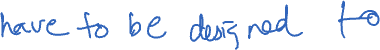 have to be designed to